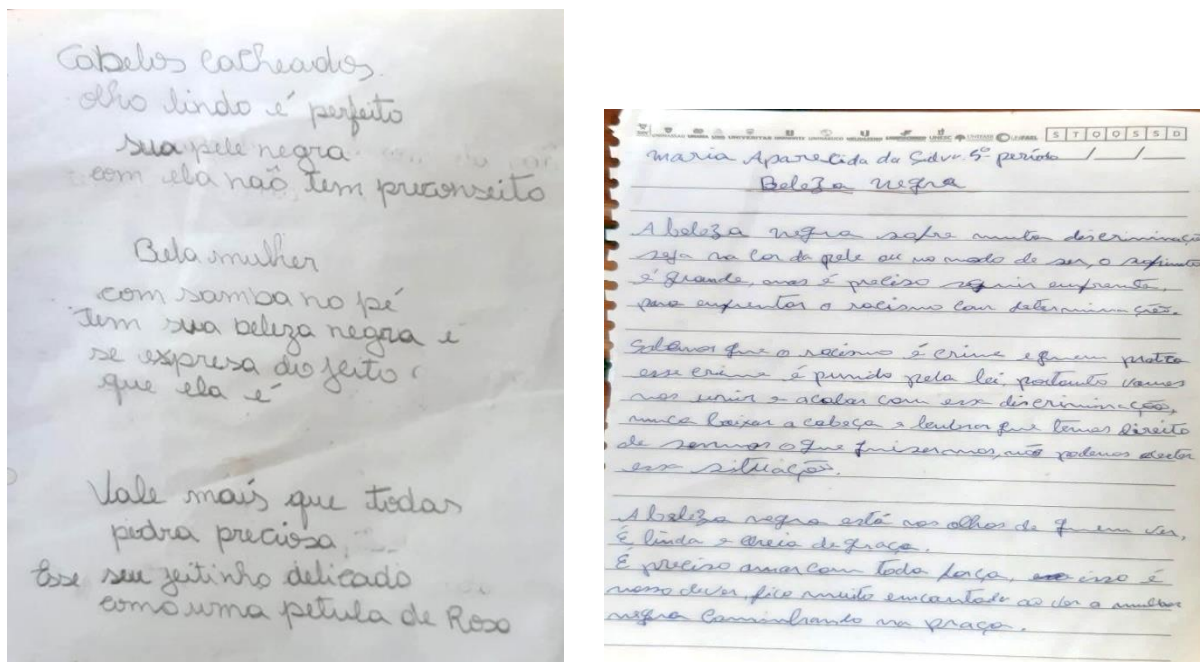 Cabelos cacheados.
olho lindo é perfeito
sua pele negra
com ela não tem preconseito
Bela mulher
com samba no pé
tem sua beleza negra e
se expresa do jeito
que ela é
Vale mais que todas
pidra preciosa
Esse seu jeitinho delicado
como uma petula de Rosa
S T Q Q S S D
Maria Aparecida da Silva 5º período / /
Beleza negra
A beleza negra sofre muita discriminaçã
seja na cor da pele ou no modo de ser, o sofrimento
é grande, mas é preciso seguir enfrente,
para enfrentar o racismo com determinação.
Sabemos que o racismo é crime e quem pratica
esse crime é punido pela lei, portanto vamos
nos unir e acabar com essa discriminação,
nunca baixar a cabeça e lembrar que temos direito
de sermos o que quisermos, não podemos
essa situação.
A beleza negra está nos olhos de quem ver,
É linda e cheia de graça.
É preciso amar com toda força, isso é
nosso dever, fico muito encantado ao ver a mulher
negra caminhando na praça.